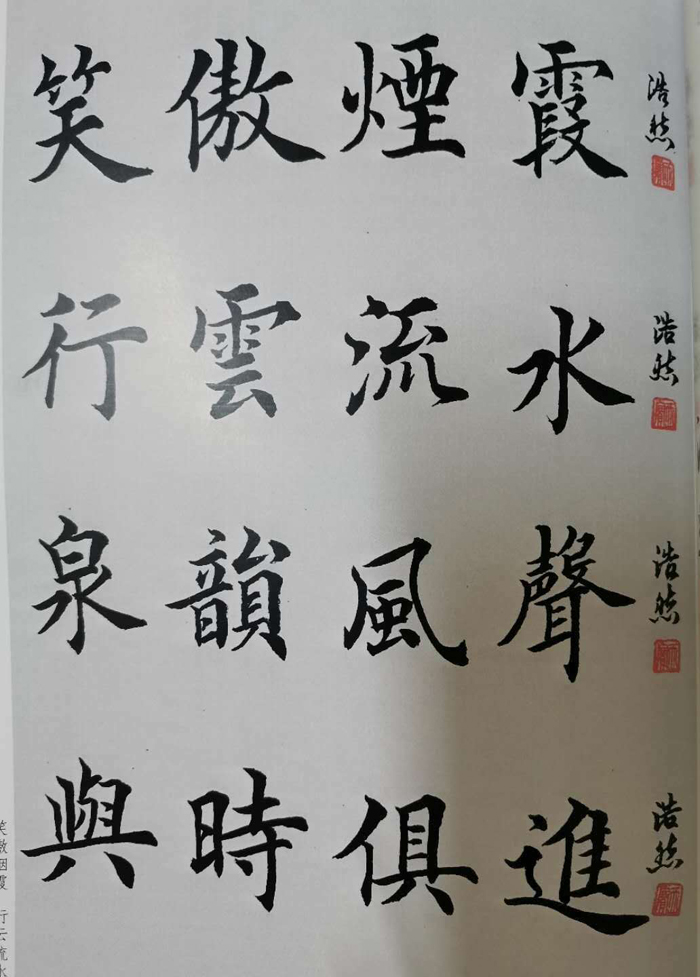 笑傲煙霞 浩然
行雲流水 浩然
泉韻風聲 浩然
與時俱進 浩然
笑傲烟霞 行云流水